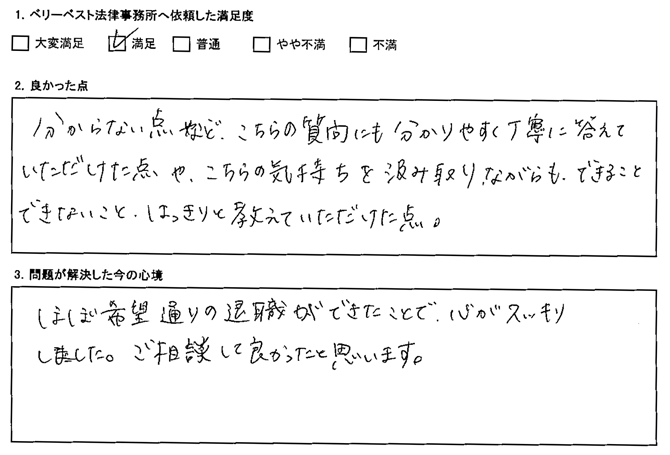 1. ベリーベスト法律事務所へ依頼した満足度
□ 大変満足 ☑ 満足 □ 普通 □ やや不満 □ 不満
2. 良かった点
分からない点など、こちらの質問にも分かりやすく丁寧に答えて
いただけた点や、こちらの気持ちを汲み取りながらも、できること
できないこと、はっきりと教えていただけた点。
3. 問題が解決した今の心境
ほぼ希望通りの退職ができたことで、心がスッキリ
しました。ご相談して良かったと思います。